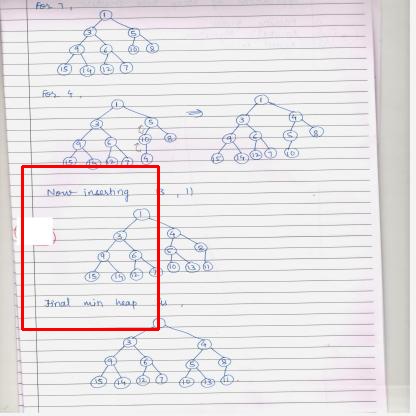 For 7,
1
3 5
9 6 10 8
15 14 12 7
For 4,
1 1
3 5 ⇒ 3 4
9 6 10 8 9 6 5 8
15 14 12 7 4 15 14 12 7 10
Now inserting , 11
1
3 4
9 6 5 8
15 14 12 7 10 13 11
Final min heap is,
3 4
9 6 5 8
15 14 12 7 10 13 11